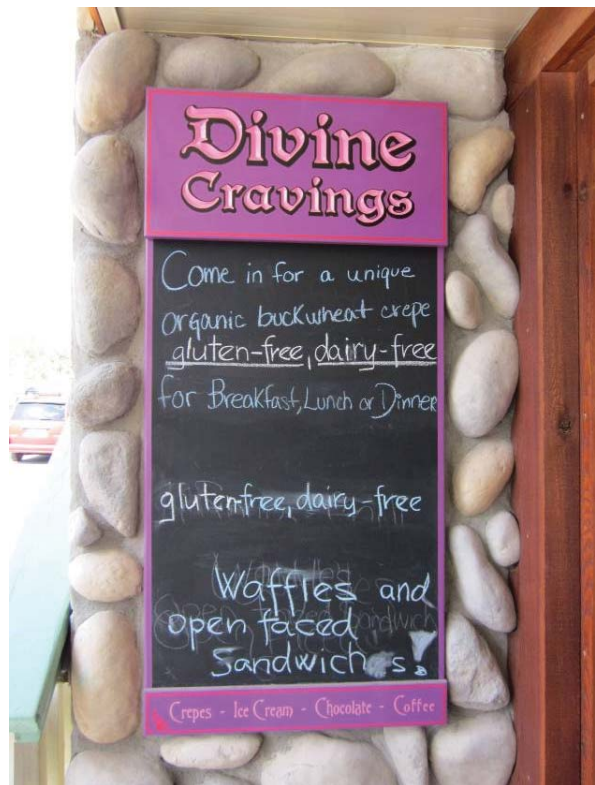 Divine
Cravings
Come in for a unique
organic buckwheat crepe
gluten-free, dairy-free
for Breakfast, Lunch or Dinner
gluten-free, dairy-free
Waffles and
open faced
Sandwich s.
Crepes - Ice Cream - Chocolate - Coffee